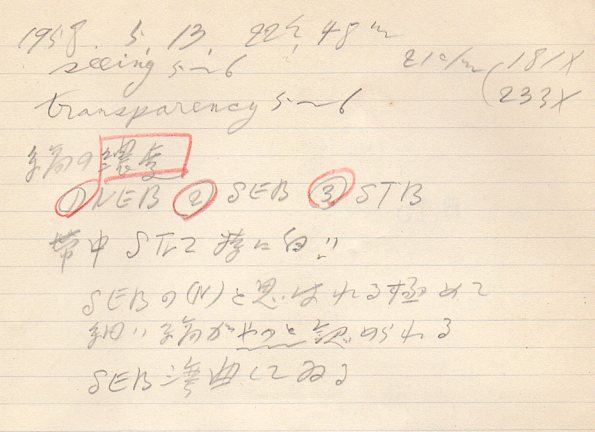 1958. 5. 13. 22h 48m
seeing 5~6
21c/m (181X
233X
transparency 5~6
縞の濃度
① NEB ② SEB ③ STB
帯中 STrZ 特に白い
SEBの(N)と思はれる極めて
細い縞がやっと認められる
SEB 湾曲してゐる